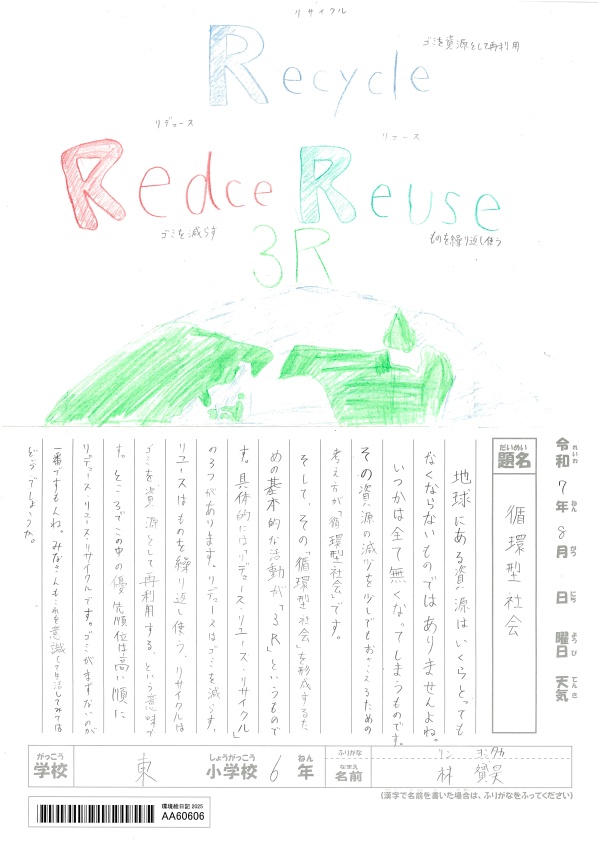 リサイクル
Recycle
ゴミを資源として再利用
リデュース
Redce
ゴミを減らす
リユース
Reuse
ものを繰り返し使う
3R
令和7年8月 日 曜日 天気
れいわ ねん がつ にち ようび てんき
だいめい
題名
循環型社会
地球にある資源はいくらとっても
なくならないものではありませんよね。
いつかは全て無くなってしまうものです。
その資源の減少を少しでもおさえるための
考え方が「循環型社会」です。
そして、その「循環型社会」を形成するた
めの基本的な活動が「3R」というもので
す。具体的には「リデュース・リユース・リサイクル」
の3つがあります。リデュースはゴミを減らす、
リユースはものを繰り返し使う、リサイクルは
ゴミを資源として再利用する、という意味で
す。ところでこの中の優先順位は高い順に
リデュース・リユース・リサイクルです。ゴミがまずないのが
一番ですもんね。みなさんもこれを意識して生活してみては
どうでしょうか。
がっこう
学校
東
しょうがっこう
小学校
6
ねん
年
ふりがな
リン
なまえ
名前
林
(漢字で名前を書いた場合は、ふりがなをふってください)
環境絵日記 2025
AA60606